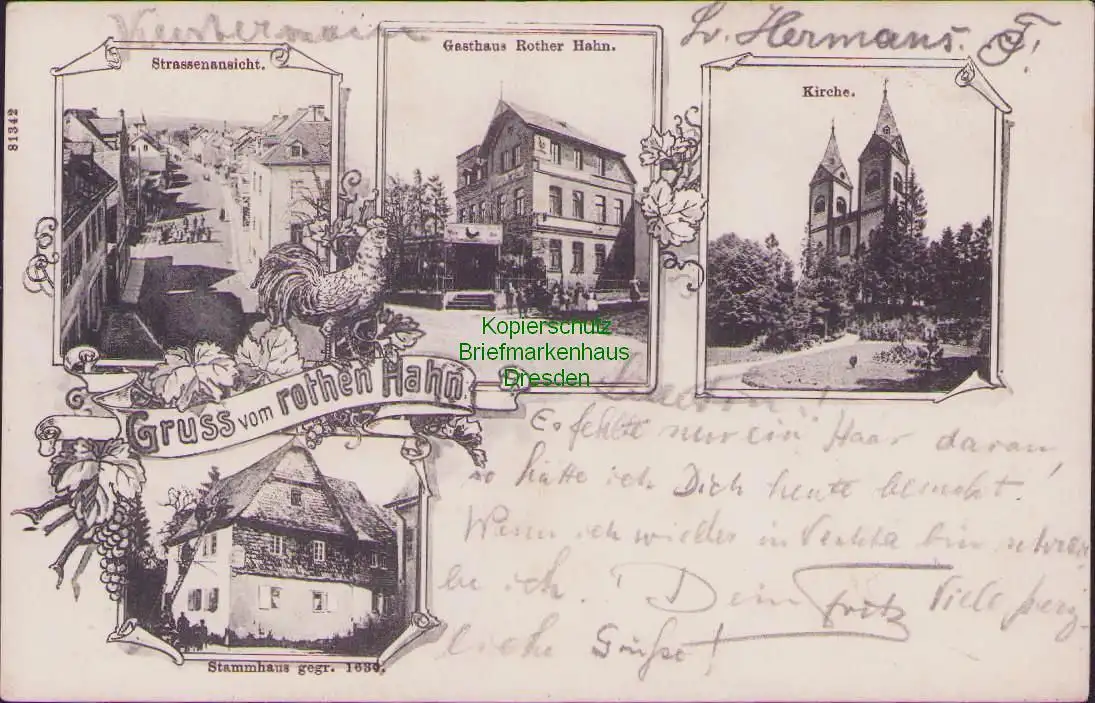 Westermain
Lr. Hermans. F!
81342
Strassenansicht.
Gasthaus Rother Hahn.
Kirche.
Kopierschutz
Briefmarkenhaus
Dresden
Gruss vom rothen Hahn.
Es fehlte nur ein Haar daran,
so hätte ich Dich heute besucht.
Wenn ich wieder in Vechta bin schrei-
be ich. Dein Fritz Viele herz-
liche Grüße!
Stammhaus gegr. 1630.